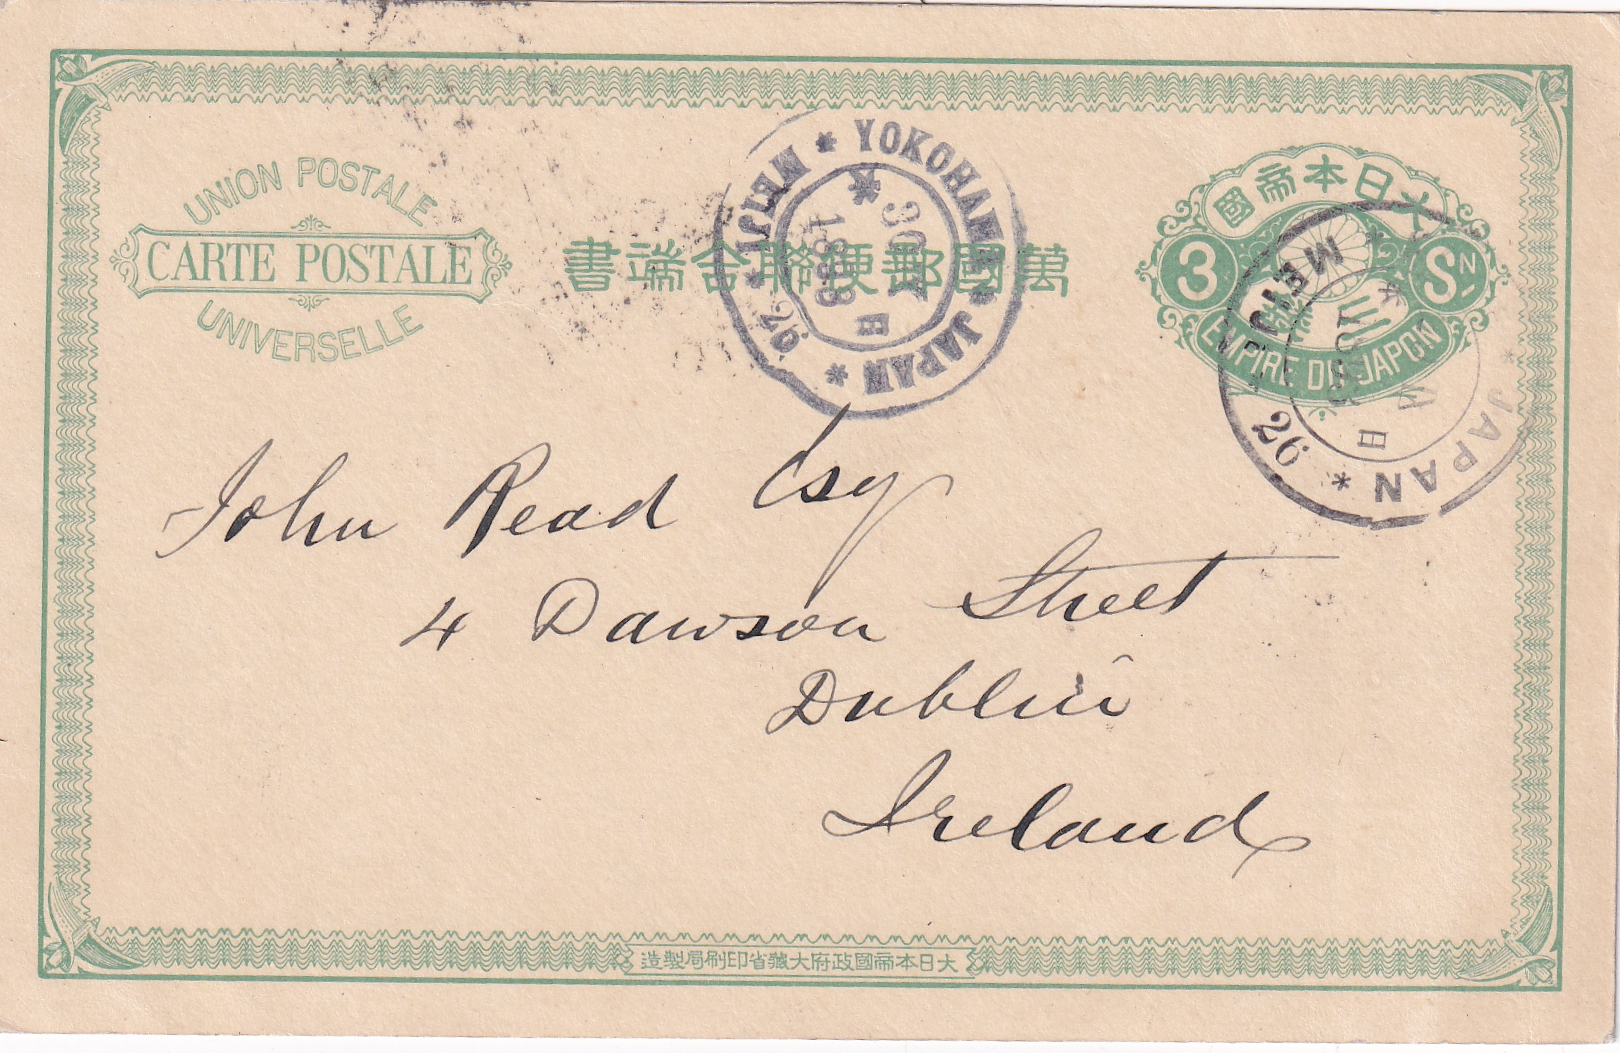 UNION POSTALE
CARTE POSTALE
UNIVERSELLE
書端合聯便郵國萬
YOKOHAMA * JAPAN * 26 * MEIJI *
日
國帝本日大
3 SN
EMPIRE DU JAPON
MEIJI
* JAPAN * 26
日
John Read Esq
4 Dawson Street
Dublin
Ireland
造製局刷印省藏大府政國帝本日大